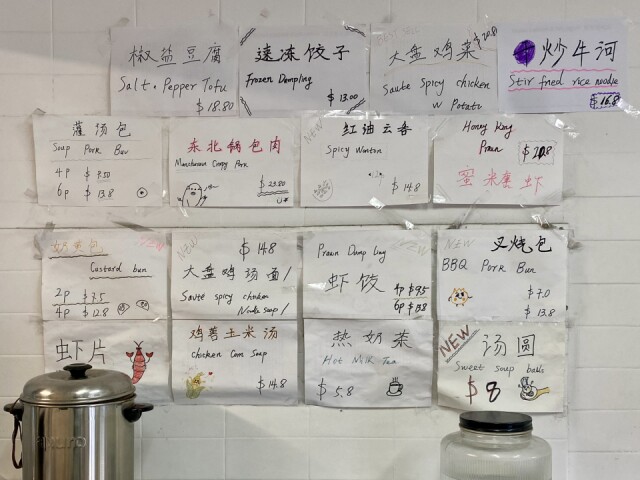 椒盐豆腐
Salt. Pepper Tofu
$18.80
速冻饺子
Frozen Dumpling
$13.00
大盘鸡菜
$20.8
Saute Spicy chicken
w Potato
炒牛河
Stir fried rice noodle
$16.8
灌汤包
Soup Pork Bun
4p $9.50
6p $13.8
东北锅包肉
Mandarean Crispy Pork
$23.80
NEW
红油云吞
Spicy Wonton
$14.8
Honey King
Prawn
$20.8
蜜米煮虾
奶黄包
NEW
Custard bun
2p $7.5
4p $12.8
NEW
$14.8
大盘鸡汤面
Saute spicy chicken
Noodle soup
Prawn Dump Ling
虾饺
4p $9.5
6p $13.8
NEW
叉烧包
BBQ Pork Bun
$7.0
$13.8
虾片
鸡蓉玉米汤
chicken Corn Soup
$14.8
热奶茶
Hot Milk Tea
$5.8
NEW
汤圆
Sweet soup balls
$8